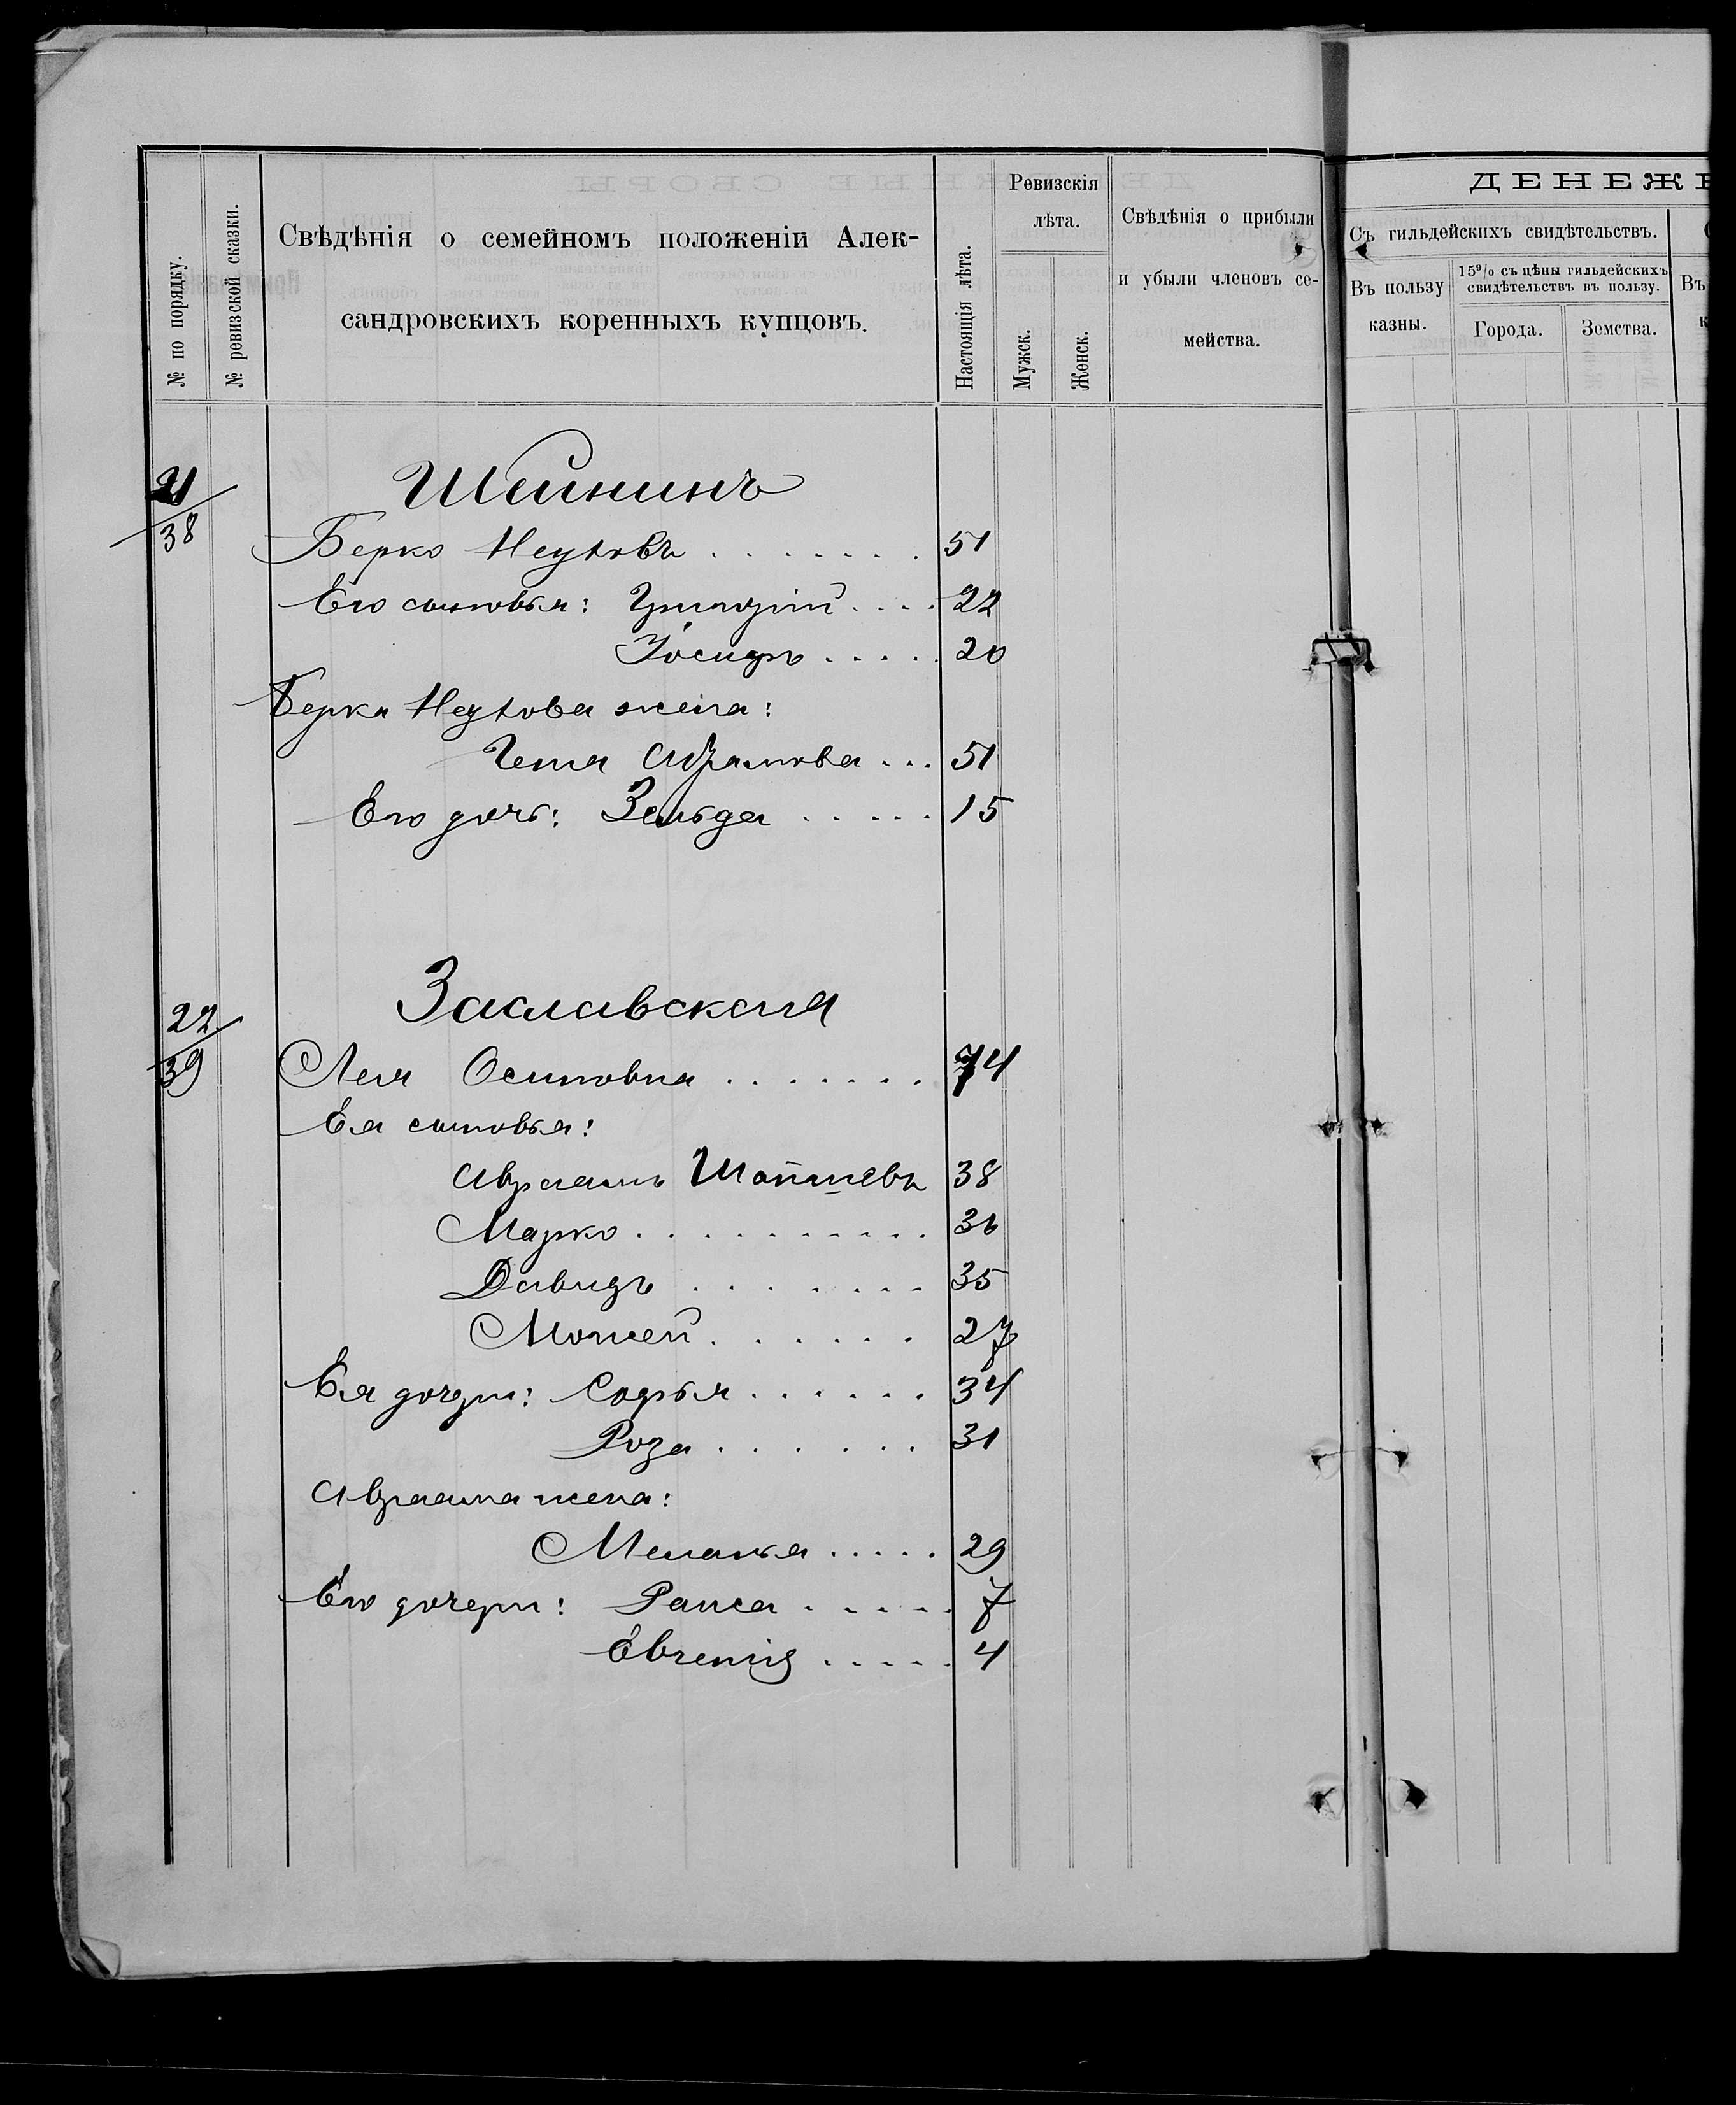 ДЕНЕЖН
№ по порядку.
№ ревизской сказки.
Свѣдѣнія о семейномъ положеніи Алек-
сандровскихъ коренныхъ купцовъ.
Настоящія лѣта.
Ревизскія
лѣта.
Мужск.
Женск.
Свѣдѣнія о прибыли
и убыли членовъ се-
мейства.
Съ гильдейскихъ свидѣтельствъ.
Въ пользу
казны.
15% съ цѣны гильдейскихъ
свидѣтельствъ въ пользу.
Города.
Земства.
Въ
21
38
Шейнинъ
Берко Неуховъ 51
Его сыновья: 22
Іосифъ 20
Берка Неухова жена:
Геня Абрамова 51
Его дочь: Зельда 15
22
39
Заславская
Лея Осиповна 74
Ея сыновья:
Авраамъ 38
Марко 36
Давидъ 35
Моисей 27
Ея дочери: Софья 34
Роза 31
Авраама жена:
Меланья 29
Его дочери: Раиса 7
Евгенія 4